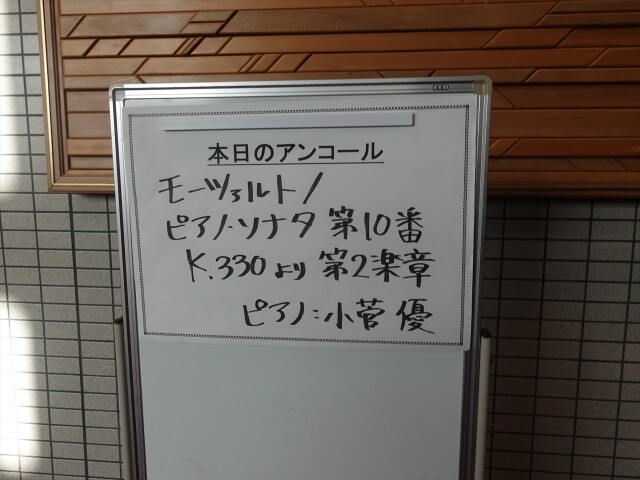 本日のアンコール
モーツァルト/
ピアノ・ソナタ 第10番
K.330より 第2楽章
ピアノ:小菅 優